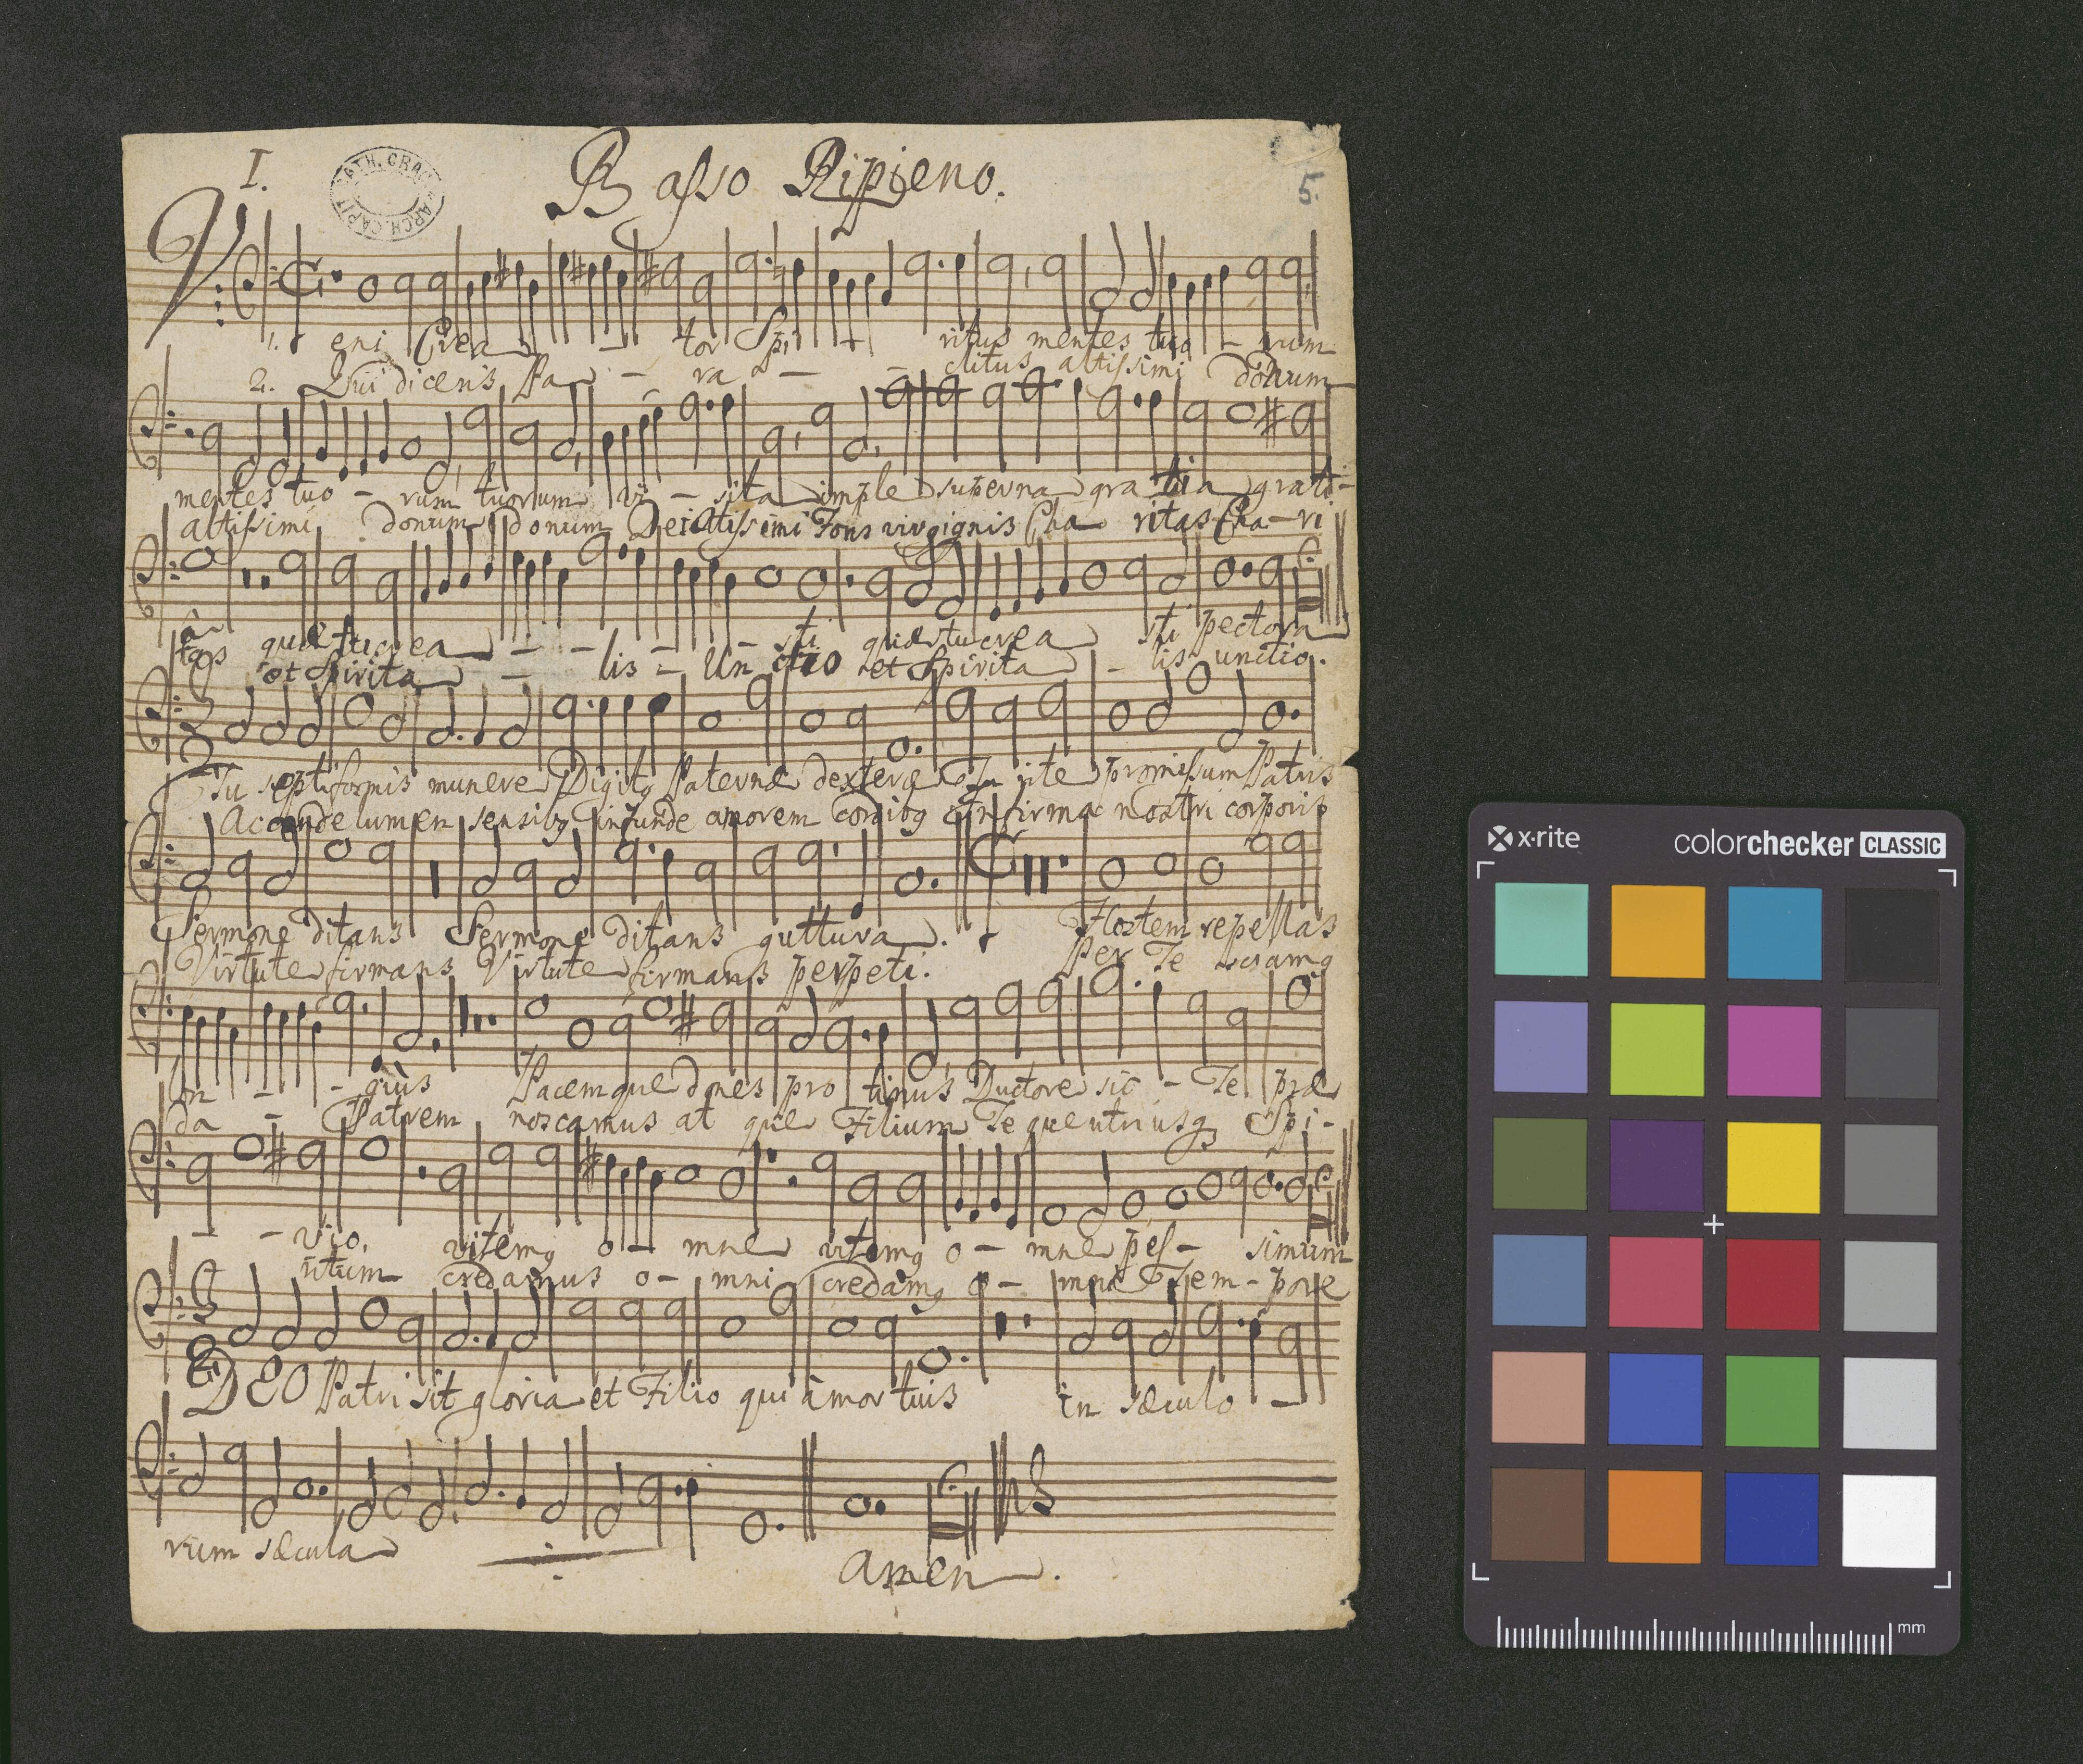 I.
CATH. CRAC. ARCH. CAPIT.
Basso Ripieno.
5.
1. Veni Crea - tor Spi - ritus mentes tuo - rum
2. Qui diceris Pa - ra - - clitus altissimi donum
mentes tuo - rum tuorum vi - sita imple superna gratia grati-
altissimi donum donum Dei Altissimi Fons viv9 ignis Cha ritas Cha - ri
à quæ tu crea - - - - sti quæ tu crea sti pectora
tas et Spirita - lis - Un ctio et Spirita - lis unctio.
Tu septiformis munere Digit9 Paternæ dexteræ Tu rite promissum Patris
Accende lumen sensib9 infunde amorem cordib9 infirma nostri corporis
Sermone ditans Sermone ditans guttura.
Virtute firmans Virtute firmans perpeti.
Hostem repellas
Per Te sciam9
lon - - giùs Pacemque dones pro tinus Ductore sic - Te præ
da - Patrem noscamus at que Filium Te que utriusq3 Spi-
- - vio, vitem9 o - mne vitem9 o - mne pes - simum
ritum credamus o - mni credam9 o - mni Tem - pore
DEO Patri sit gloria et Filio qui à mortuis in sæculo -
rum sæcula
Amen.
x-rite
colorchecker CLASSIC
mm